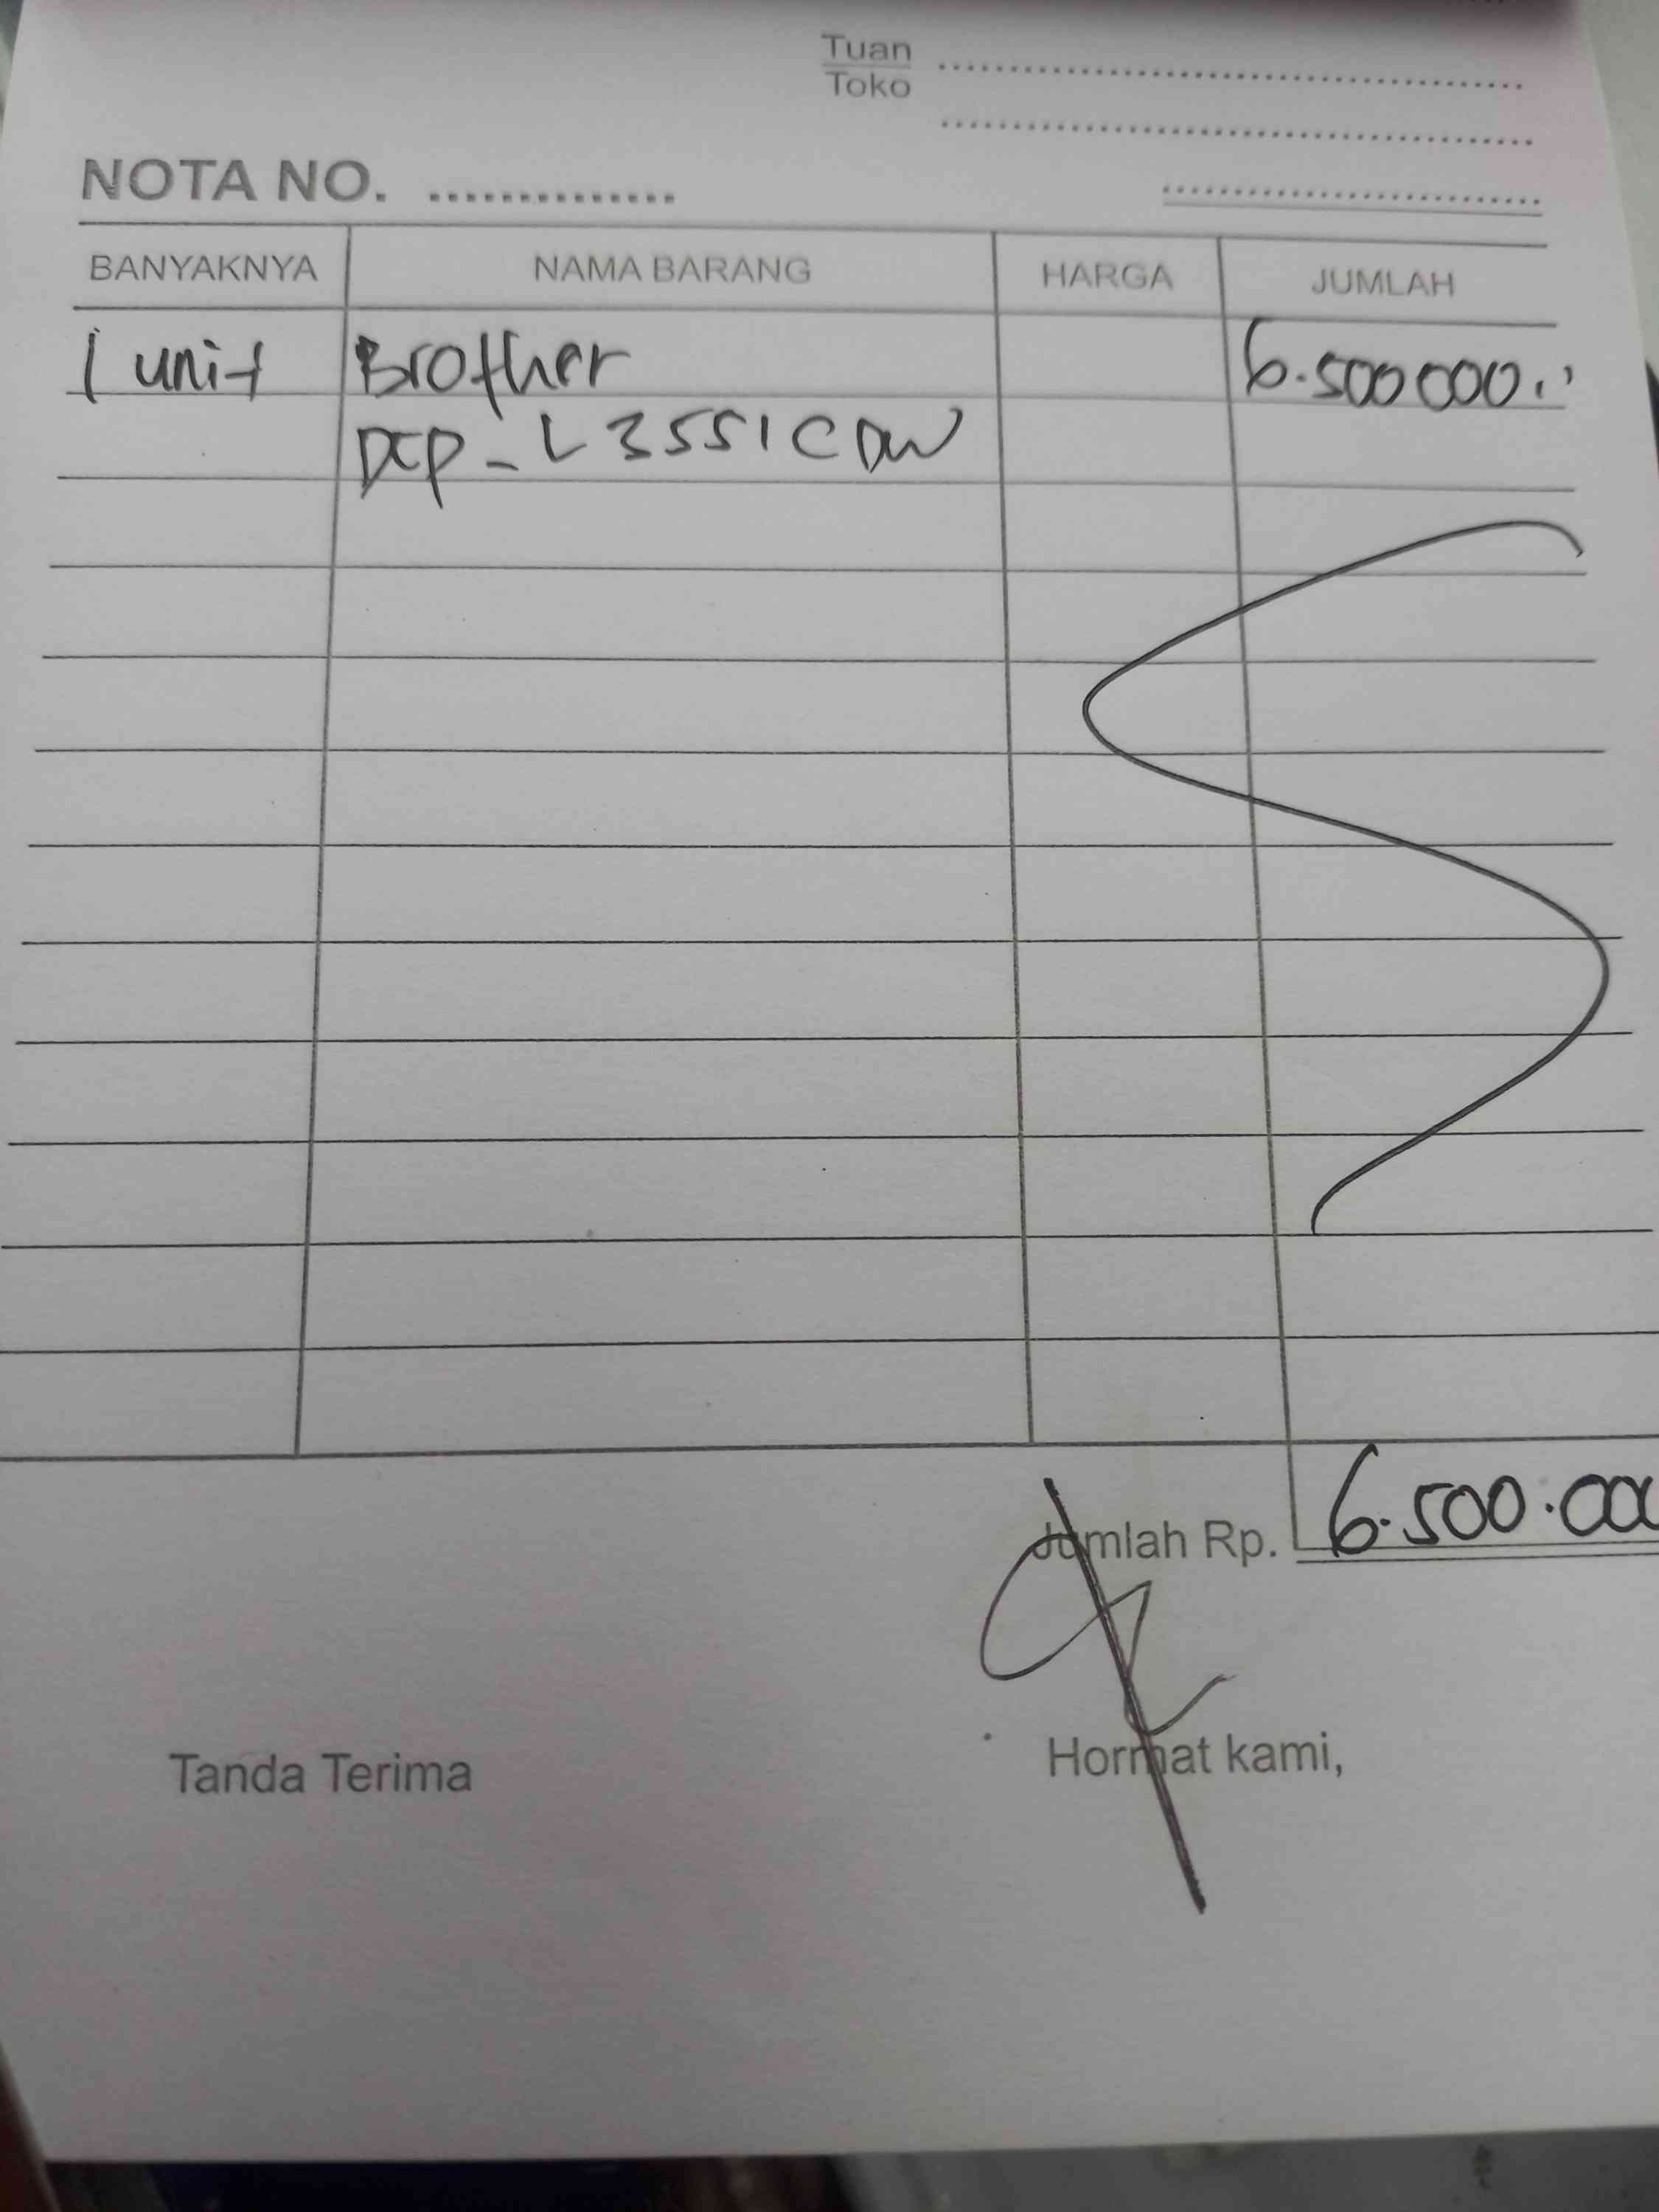 Tuan
Toko
NOTA NO.
BANYAKNYA NAMA BARANG HARGA JUMLAH
1 unit Brother 6.500000.
DCP-L3551CDW
Jumlah Rp. 6.500.000
Tanda Terima Hormat kami,